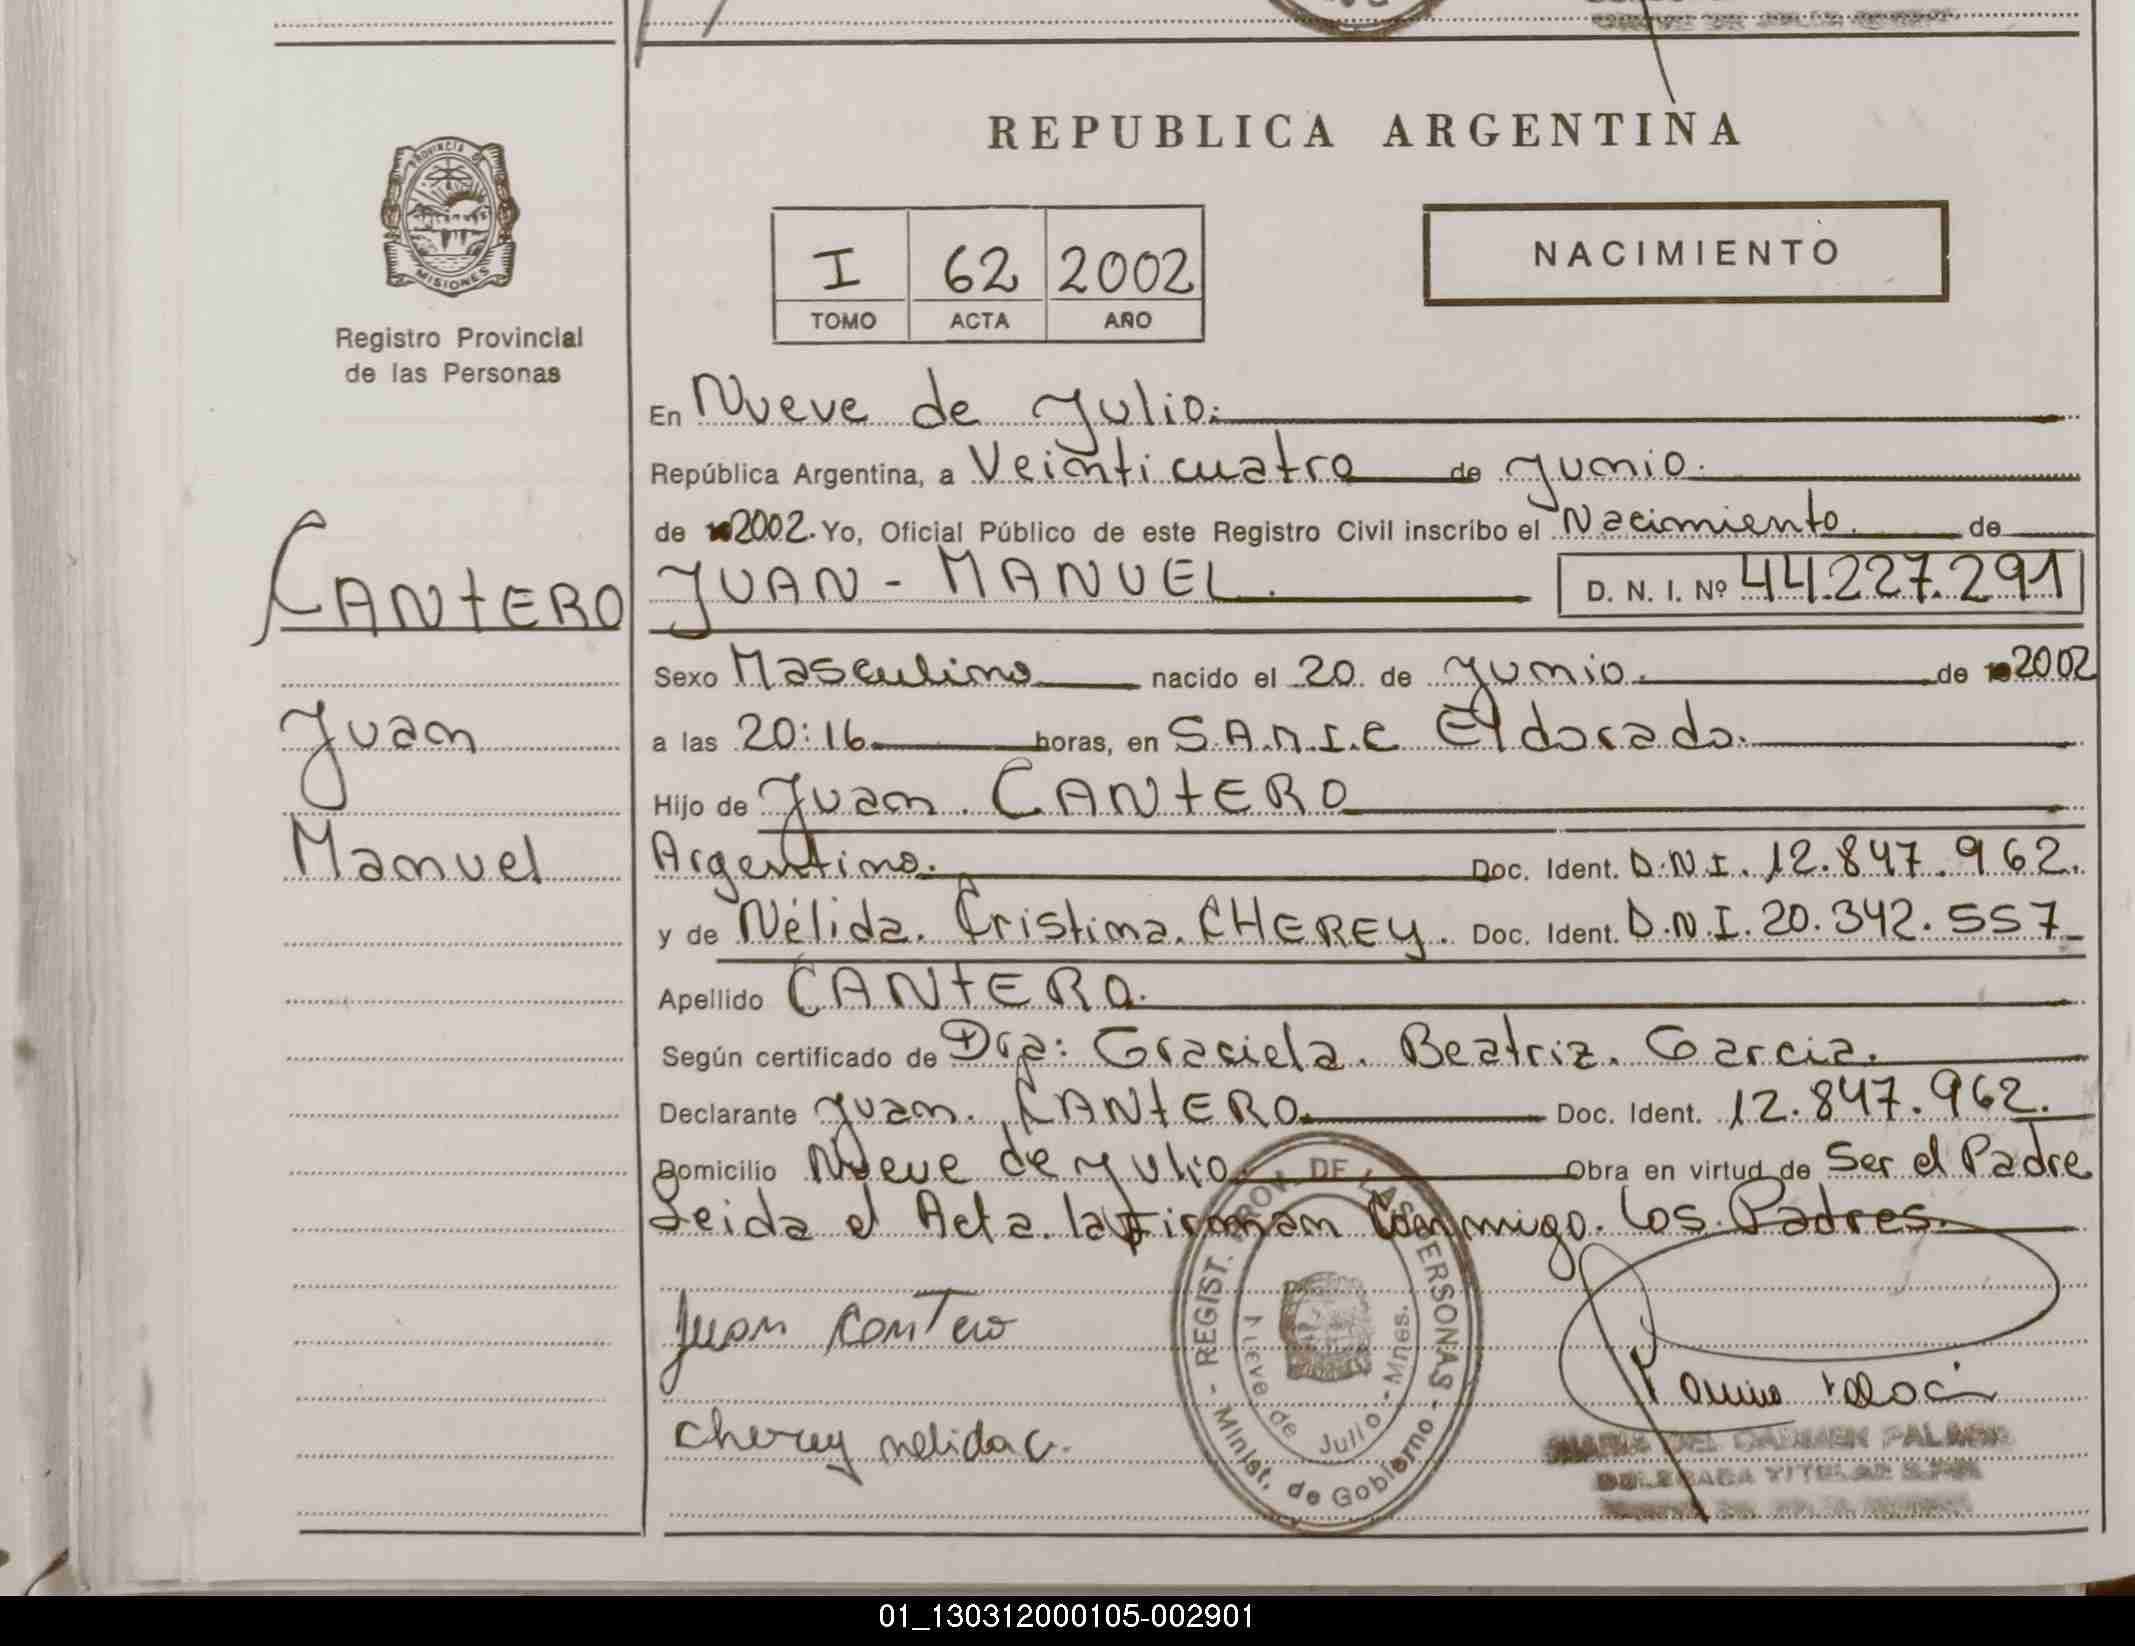 REPUBLICA ARGENTINA
PROVINCIA DE
MISIONES
Registro Provincial
de las Personas
I 62 2002
TOMO ACTA AÑO
NACIMIENTO
En Nueve de Julio.
República Argentina, a Veinticuatro de Junio.
de 2002. Yo, Oficial Público de este Registro Civil inscribo el Nacimiento. de
CANTERO
Juan
Manuel
JUAN - MANUEL. D. N. I. Nº 44.227.291
Sexo Masculino nacido el 20 de Junio. de 2002
a las 20:16 horas, en S.A.M.I.C Eldorado.
Hijo de Juan. CANTERO
Argentino. Doc. Ident. D.N.I. 12.847.962.
y de Nélida. Cristina. CHEREY. Doc. Ident. D.N.I. 20.342.557
Apellido CANTERO.
Según certificado de Dra: Graciela. Beatriz. Garcia.
Declarante Juan. CANTERO. Doc. Ident. 12.847.962.
Domicilio Nueve de Julio. Obra en virtud de Ser el Padre
Leida el Acta. la firman Conmigo. los Padres.
Juan Cantero
Cherey nelida C.
REGIST. PROV. DE LAS PERSONAS - Minist. de Gobierno -
Nueve de Julio - Mnes.
MARIA DEL CARMEN
01_130312000105-002901